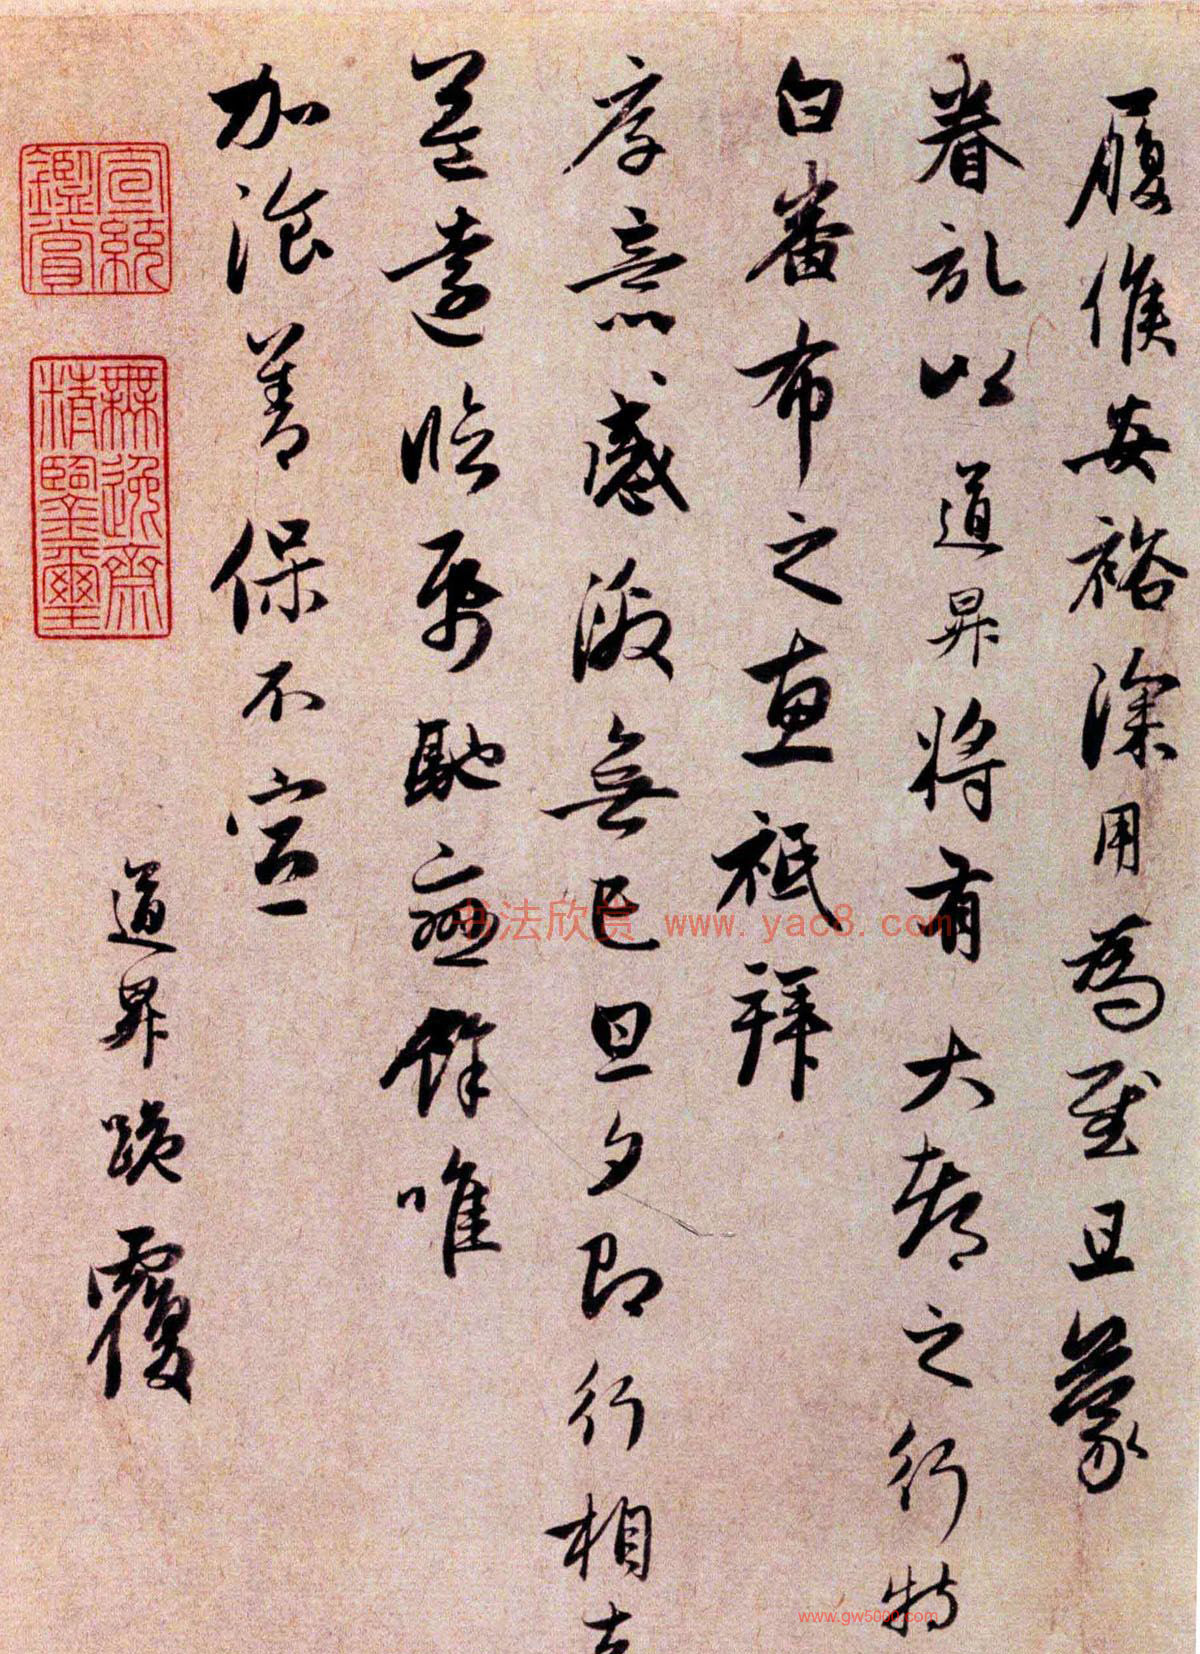 履候安裕深用為慰且蒙
眷亂以道昇將有大都之行特
白番布之惠祗拜
厚意感激無已旦夕即行相去
益遠臨紙馳戀餘唯
加飡善保不宣
道昇跪覆
宣統鑑賞
無逸齋精鑒璽
书法欣赏 www.yac8.com
www.gw5000.com